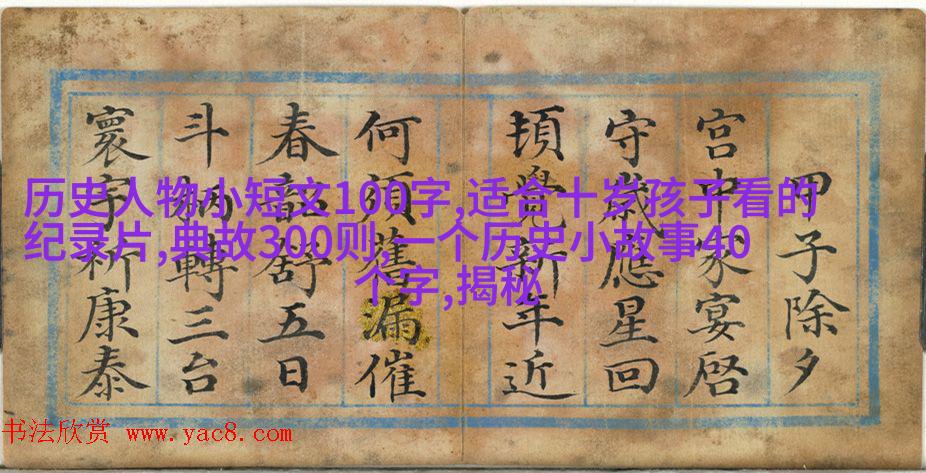 历史人物小短文100字,适合十岁孩子看的
纪录片,典故300则,一个历史小故事40
个字,揭秘
甲子除夕
宮中家宴啓
守歲應星回
頓覺新年近
何須舊漏催
春韶舒五日
斗柄轉三台
寰宇祈康泰
书法欣赏 www.yac8.com